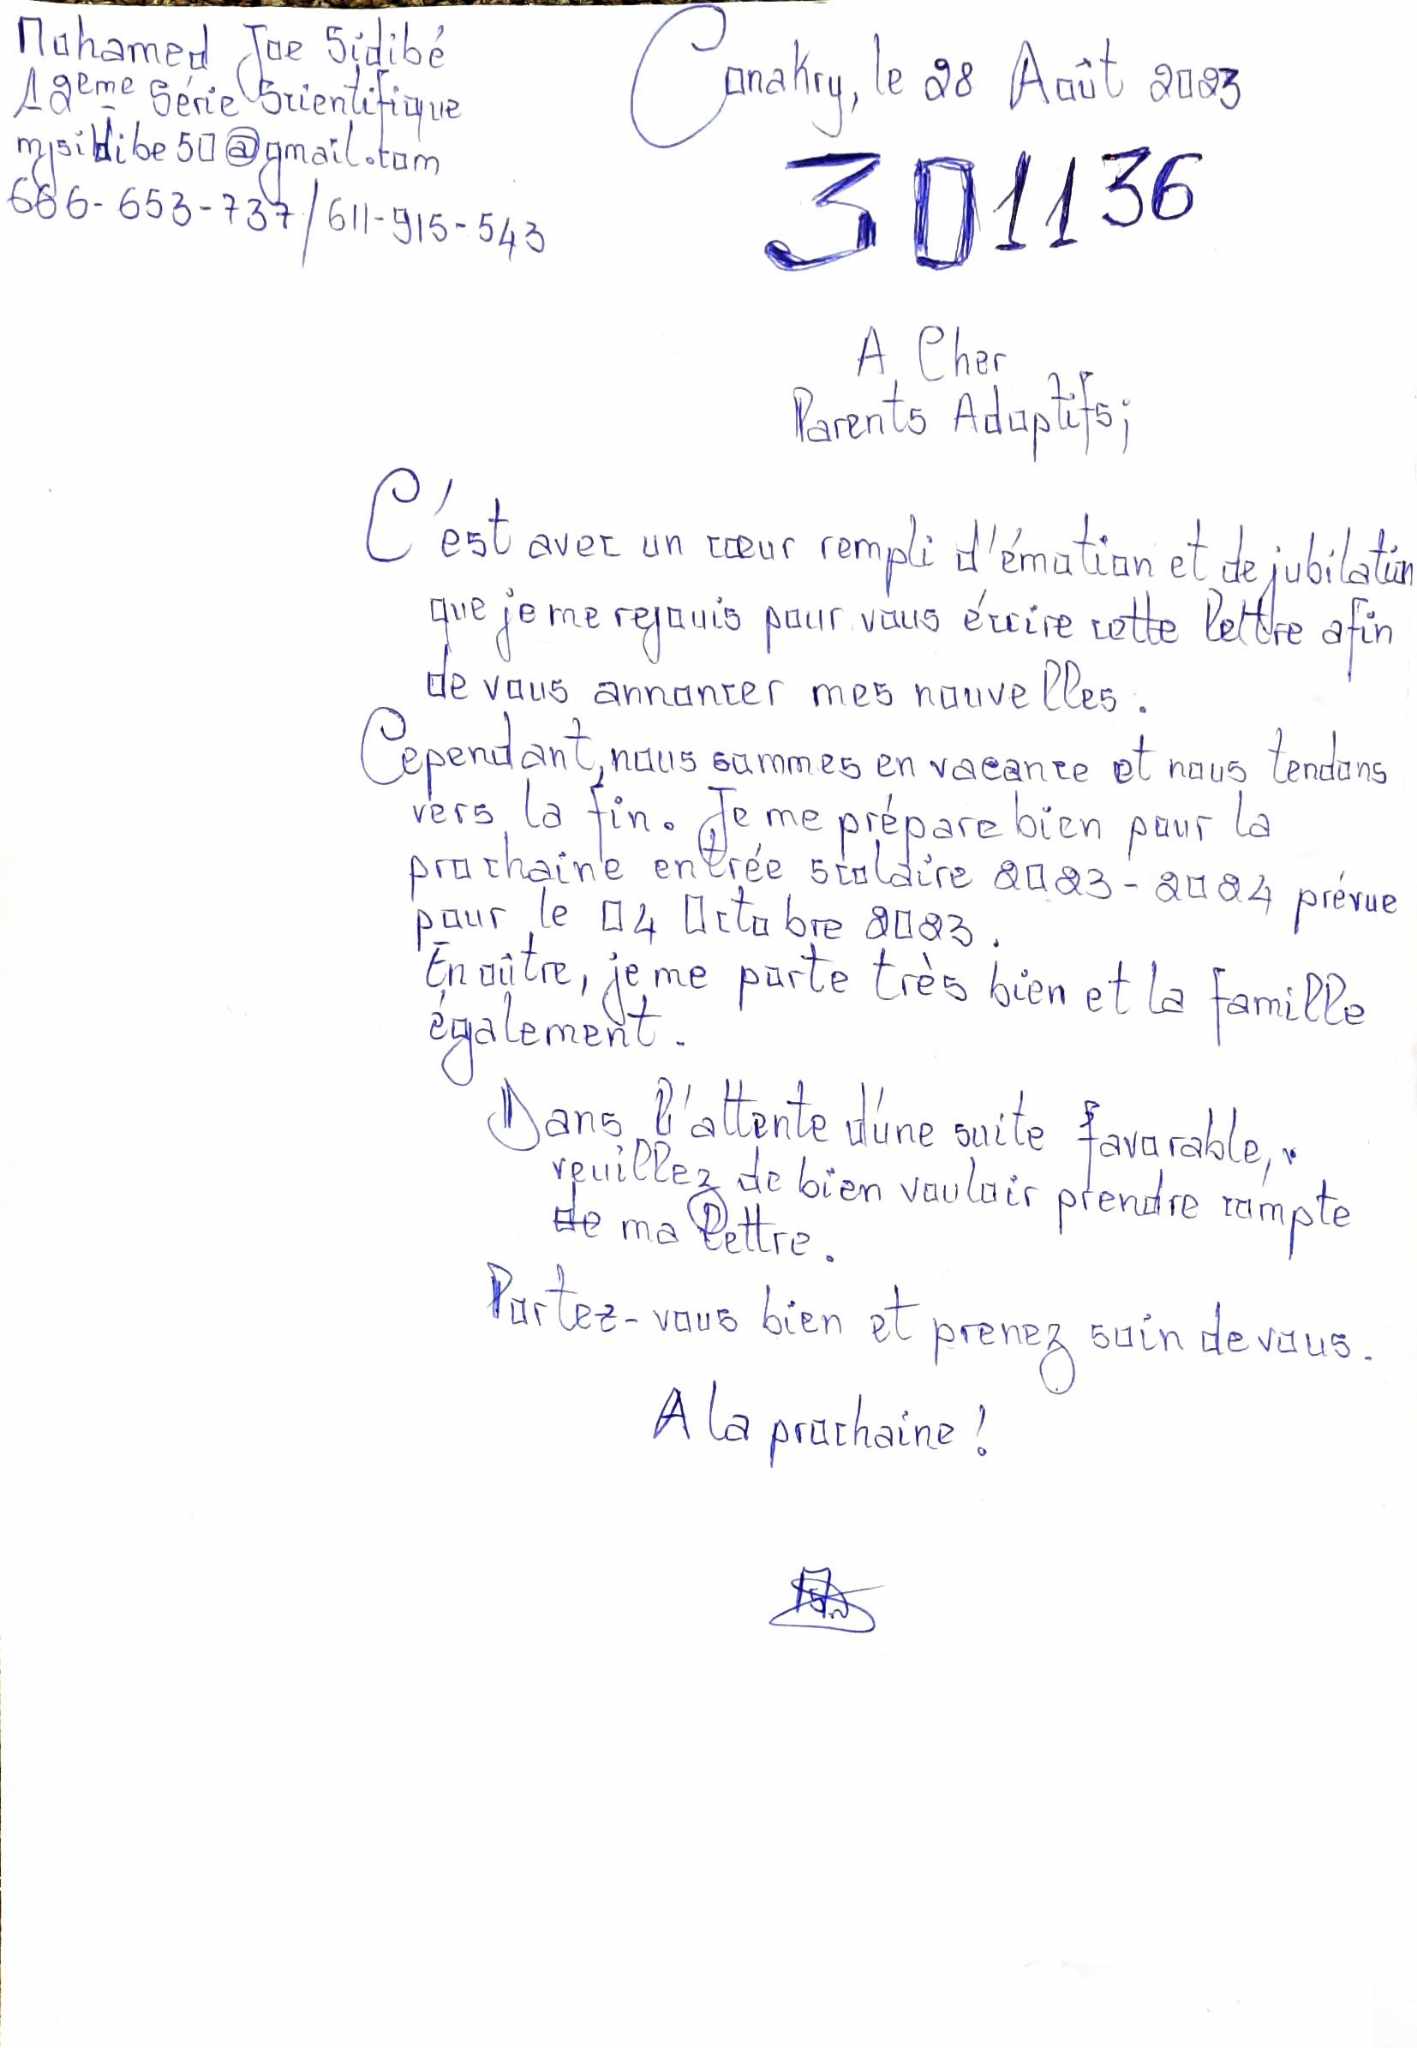 Mohamed Joe Sidibé
12eme Série Scientifique
mjsidibe50@gmail.com
666-653-737/611-915-543
Conakry, le 28 Août 2023
301136
A Cher
Parents Adoptifs;
C'est avec un cœur rempli d'émotion et de jubilation
que je me rejouis pour vous écrire cette lettre afin
de vous annoncer mes nouvelles.
Cependant, nous sommes en vacance et nous tendons
vers la fin. Je me prépare bien pour la
prochaine entrée scolaire 2023-2024 prévue
pour le 04 Octobre 2023.
En oûtre, je me porte très bien et la famille
également.
Dans l'attente d'une suite favorable,
veuillez de bien vouloir prendre compte
de ma lettre.
Portez-vous bien et prenez soin de vous.
A la prochaine !